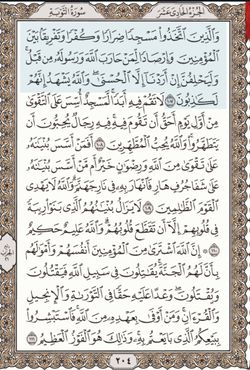 الجزء الحادي عشر
سورة التوبة
وَالَّذِينَ اتَّخَذُوا مَسْجِدًا ضِرَارًا وَكُفْرًا وَتَفْرِيقًا بَيْنَ
الْمُؤْمِنِينَ وَإِرْصَادًا لِّمَنْ حَارَبَ اللَّهَ وَرَسُولَهُ مِن قَبْلُ
وَلَيَحْلِفُنَّ إِنْ أَرَدْنَا إِلَّا الْحُسْنَىٰ وَاللَّهُ يَشْهَدُ إِنَّهُمْ
لَكَاذِبُونَ ١٠٧ لَا تَقُمْ فِيهِ أَبَدًا لَّمَسْجِدٌ أُسِّسَ عَلَى التَّقْوَىٰ
مِنْ أَوَّلِ يَوْمٍ أَحَقُّ أَن تَقُومَ فِيهِ فِيهِ رِجَالٌ يُحِبُّونَ أَن
يَتَطَهَّرُوا وَاللَّهُ يُحِبُّ الْمُطَّهِّرِينَ ١٠٨ أَفَمَنْ أَسَّسَ بُنْيَانَهُ
عَلَىٰ تَقْوَىٰ مِنَ اللَّهِ وَرِضْوَانٍ خَيْرٌ أَم مَّنْ أَسَّسَ بُنْيَانَهُ
عَلَىٰ شَفَا جُرُفٍ هَارٍ فَانْهَارَ بِهِ فِي نَارِ جَهَنَّمَ وَاللَّهُ لَا يَهْدِي
الْقَوْمَ الظَّالِمِينَ ١٠٩ لَا يَزَالُ بُنْيَانُهُمُ الَّذِي بَنَوْا رِيبَةً
فِي قُلُوبِهِمْ إِلَّا أَن تَقَطَّعَ قُلُوبُهُمْ وَاللَّهُ عَلِيمٌ حَكِيمٌ
١١٠ إِنَّ اللَّهَ اشْتَرَىٰ مِنَ الْمُؤْمِنِينَ أَنفُسَهُمْ وَأَمْوَالَهُم
بِأَنَّ لَهُمُ الْجَنَّةَ يُقَاتِلُونَ فِي سَبِيلِ اللَّهِ فَيَقْتُلُونَ
وَيُقْتَلُونَ وَعْدًا عَلَيْهِ حَقًّا فِي التَّوْرَاةِ وَالْإِنجِيلِ
وَالْقُرْآنِ وَمَنْ أَوْفَىٰ بِعَهْدِهِ مِنَ اللَّهِ فَاسْتَبْشِرُوا
بِبَيْعِكُمُ الَّذِي بَايَعْتُم بِهِ وَذَٰلِكَ هُوَ الْفَوْزُ الْعَظِيمُ ١١١
٢٠٤